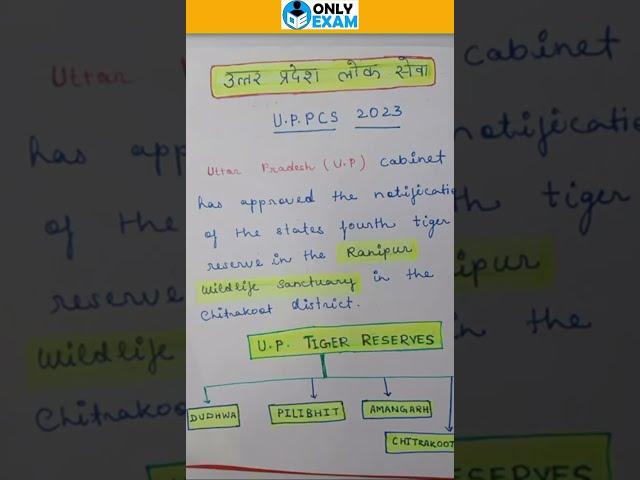 ONLY
EXAM
उत्तर प्रदेश लोक सेवा
U.P.PCS 2023
Uttar Pradesh (U.P) cabinet
has approved the notificatio
of the states fourth tiger
reserve in the Ranipur
Wildlife Sanctuary in the
Chitrakoot district.
U.P. TIGER RESERVES
DUDHWA
PILIBHIT
AMANGARH
CHITRAKOOT